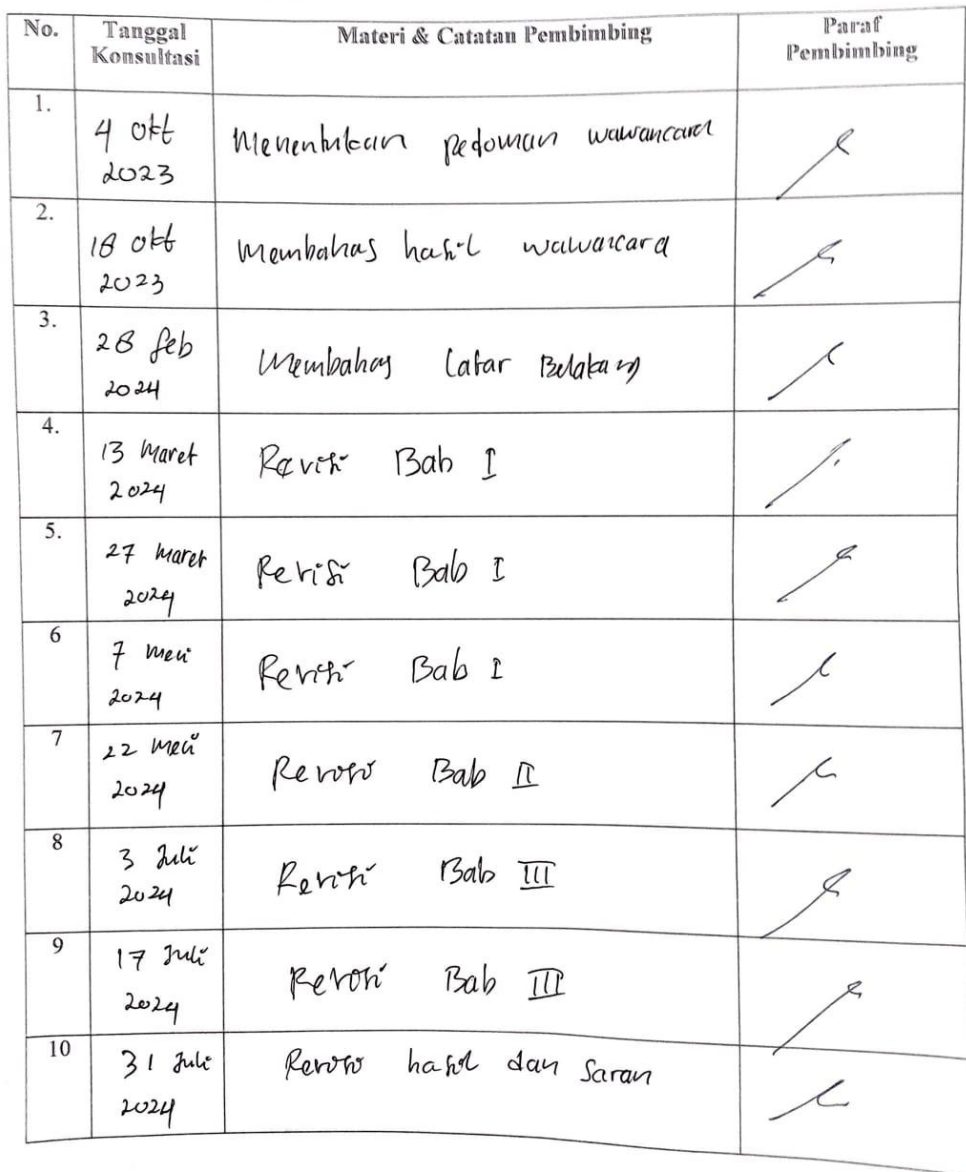 No. Tanggal Konsultasi Materi & Catatan Pembimbing Paraf Pembimbing
1. 4 Okt 2023 Menentukan pedoman wawancara
2. 18 Okt 2023 Membahas hasil wawancara
3. 28 feb 2024 Membahas Latar Belakang
4. 13 Maret 2024 Revisi Bab I
5. 27 Maret 2024 Revisi Bab I
6 7 Mei 2024 Revisi Bab I
7 22 Mei 2024 Revisi Bab II
8 3 Juli 2024 Revisi Bab III
9 17 Juli 2024 Revisi Bab III
10 31 Juli 2024 Revisi hasil dan Saran